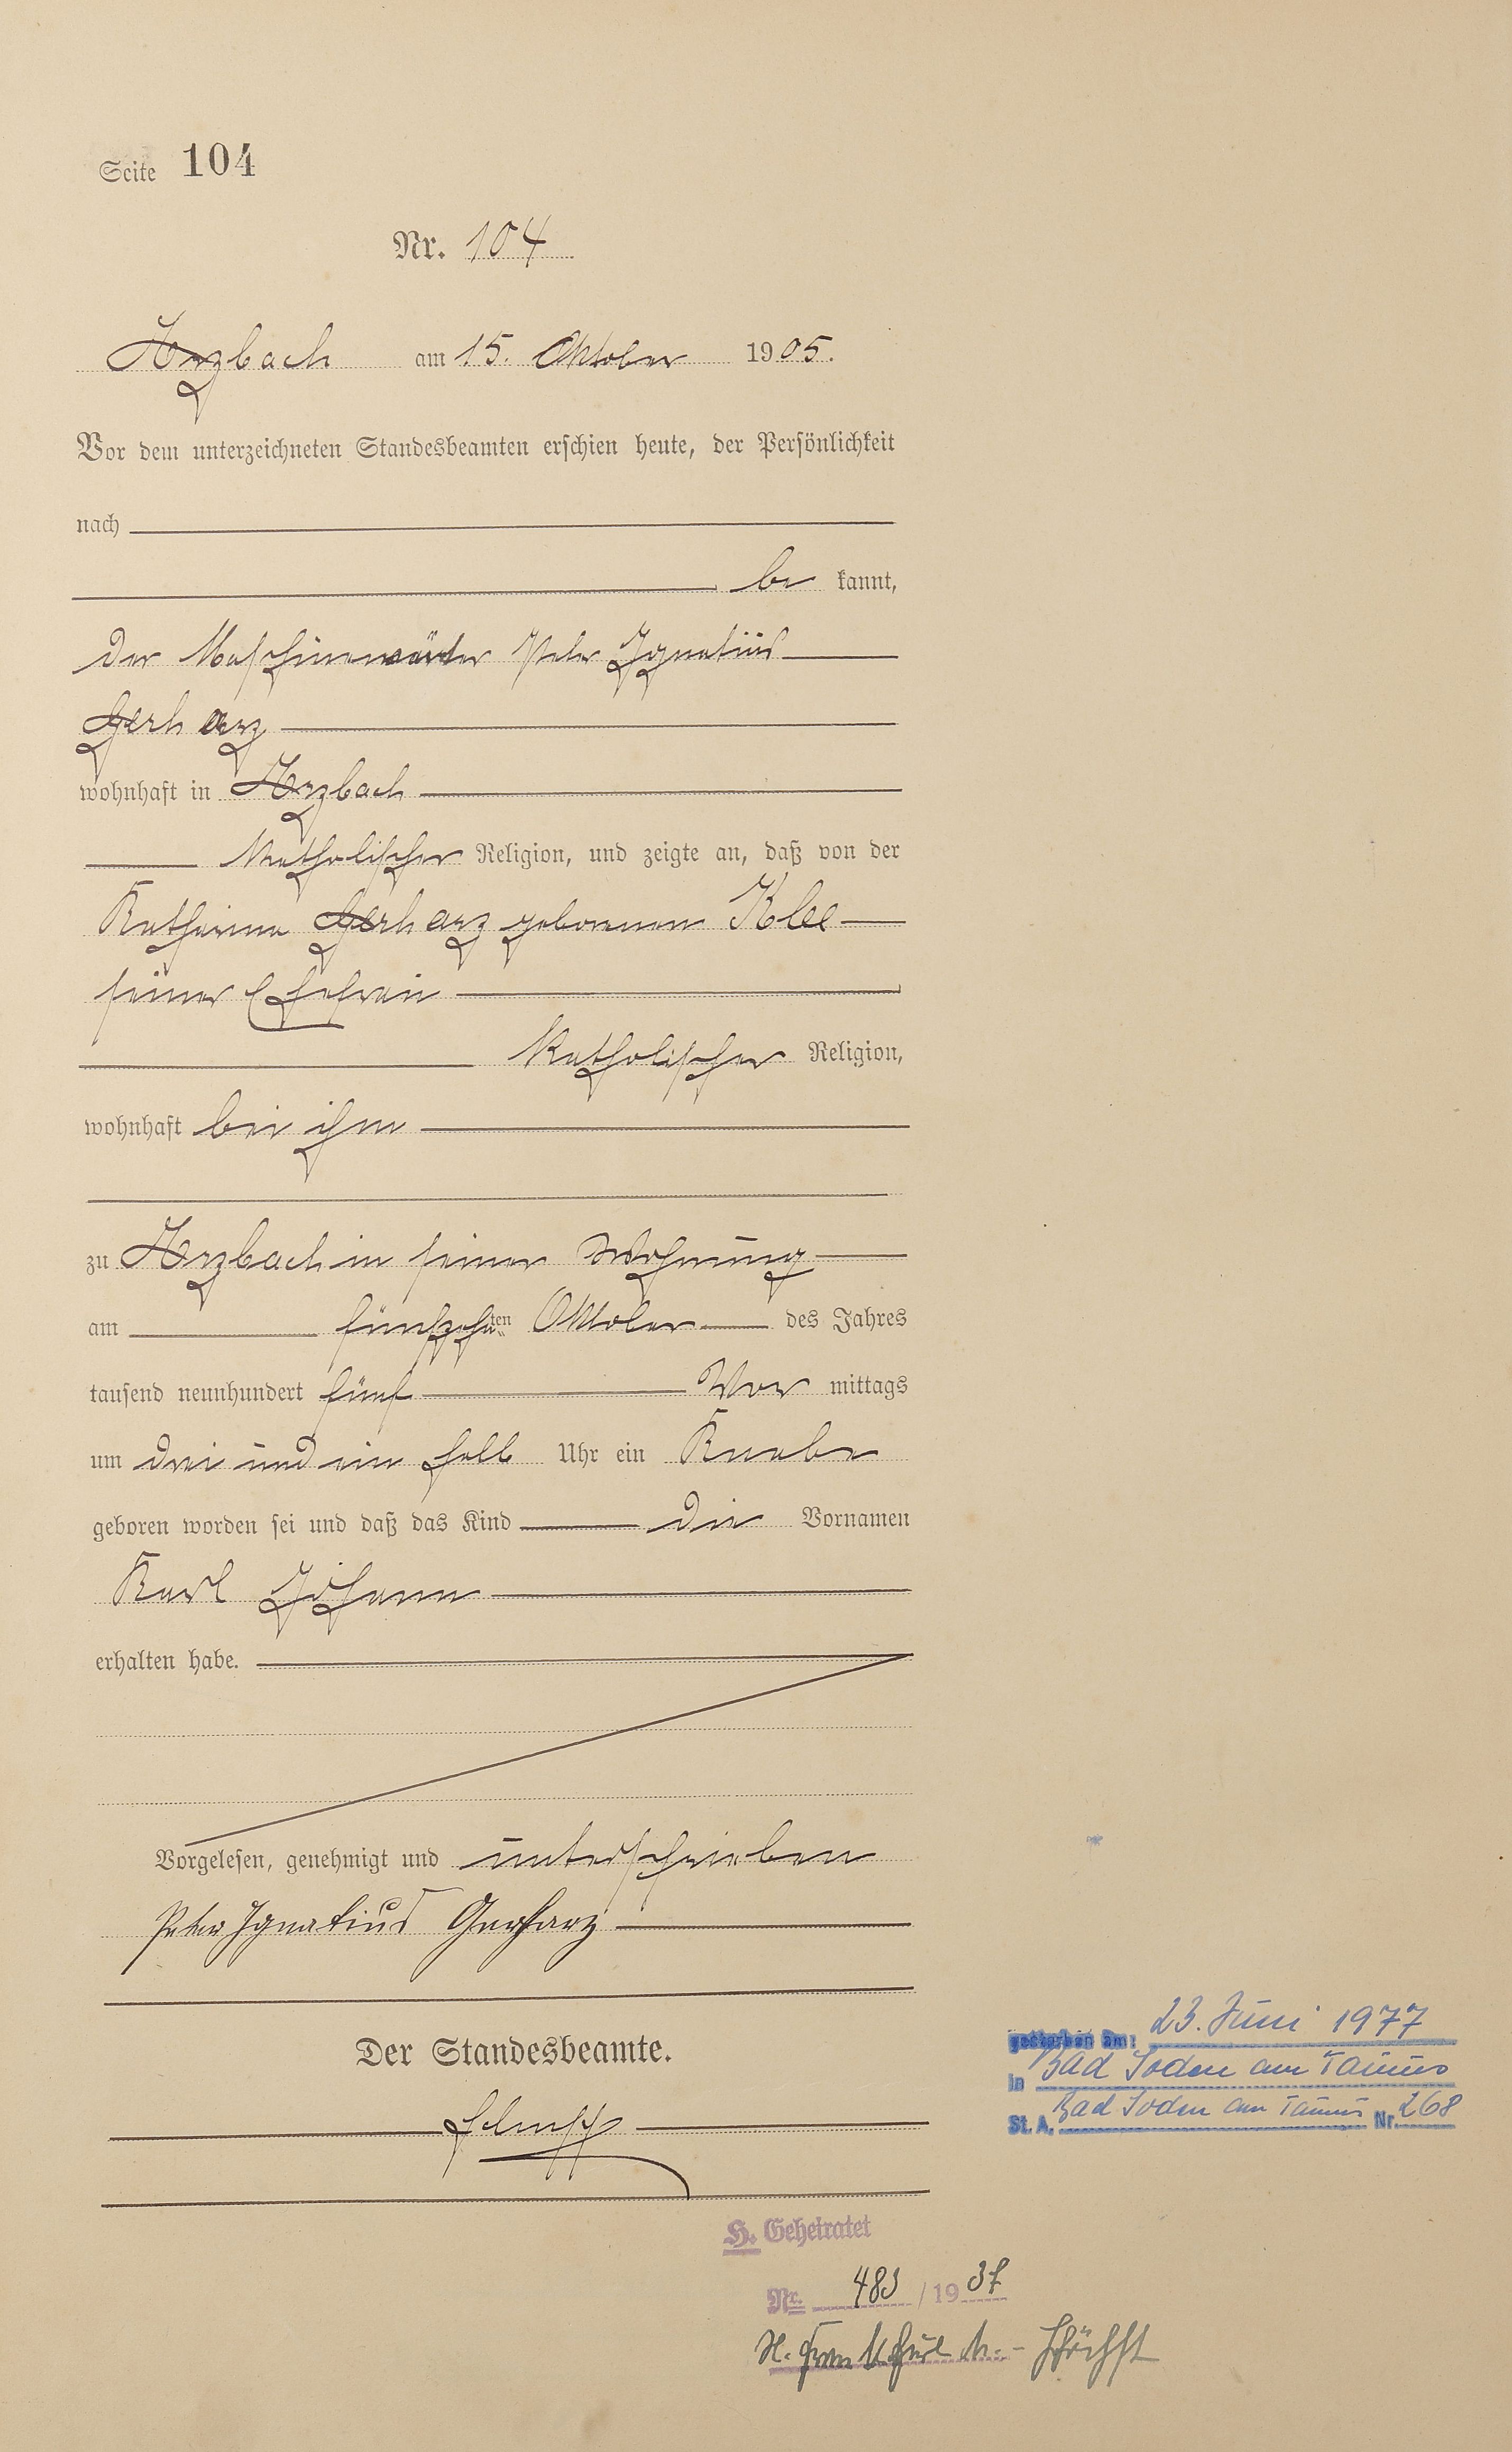 Seite 104
Nr. 104
Arzbach am 15. Oktober 1905.
Vor dem unterzeichneten Standesbeamten erschien heute, der Persönlichkeit
nach
be kannt,
der Maschinenwärter Peter Ignatius
Gerharz
wohnhaft in Arzbach
katholischer Religion, und zeigte an, daß von der
Katharina Gerharz geborenen Klee
seiner Ehefrau
katholischer Religion,
wohnhaft bei ihm
zu Arzbach in seiner Wohnung
am fünfzehnten Oktober des Jahres
tausend neunhundert fünf Vor mittags
um drei und ein halb Uhr ein Knabe
geboren worden sei und daß das Kind die Vornamen
Karl Johann
erhalten habe.
Vorgelesen, genehmigt und unterschrieben
Peter Ignatius Gerharz
Der Standesbeamte.
gestorben am: 23. Juni 1977
in Bad Soden am Taunus
St. A. Bad Soden am Taunus Nr. 268
H. Geheiratet
Nr. 483 / 1937
Höchst